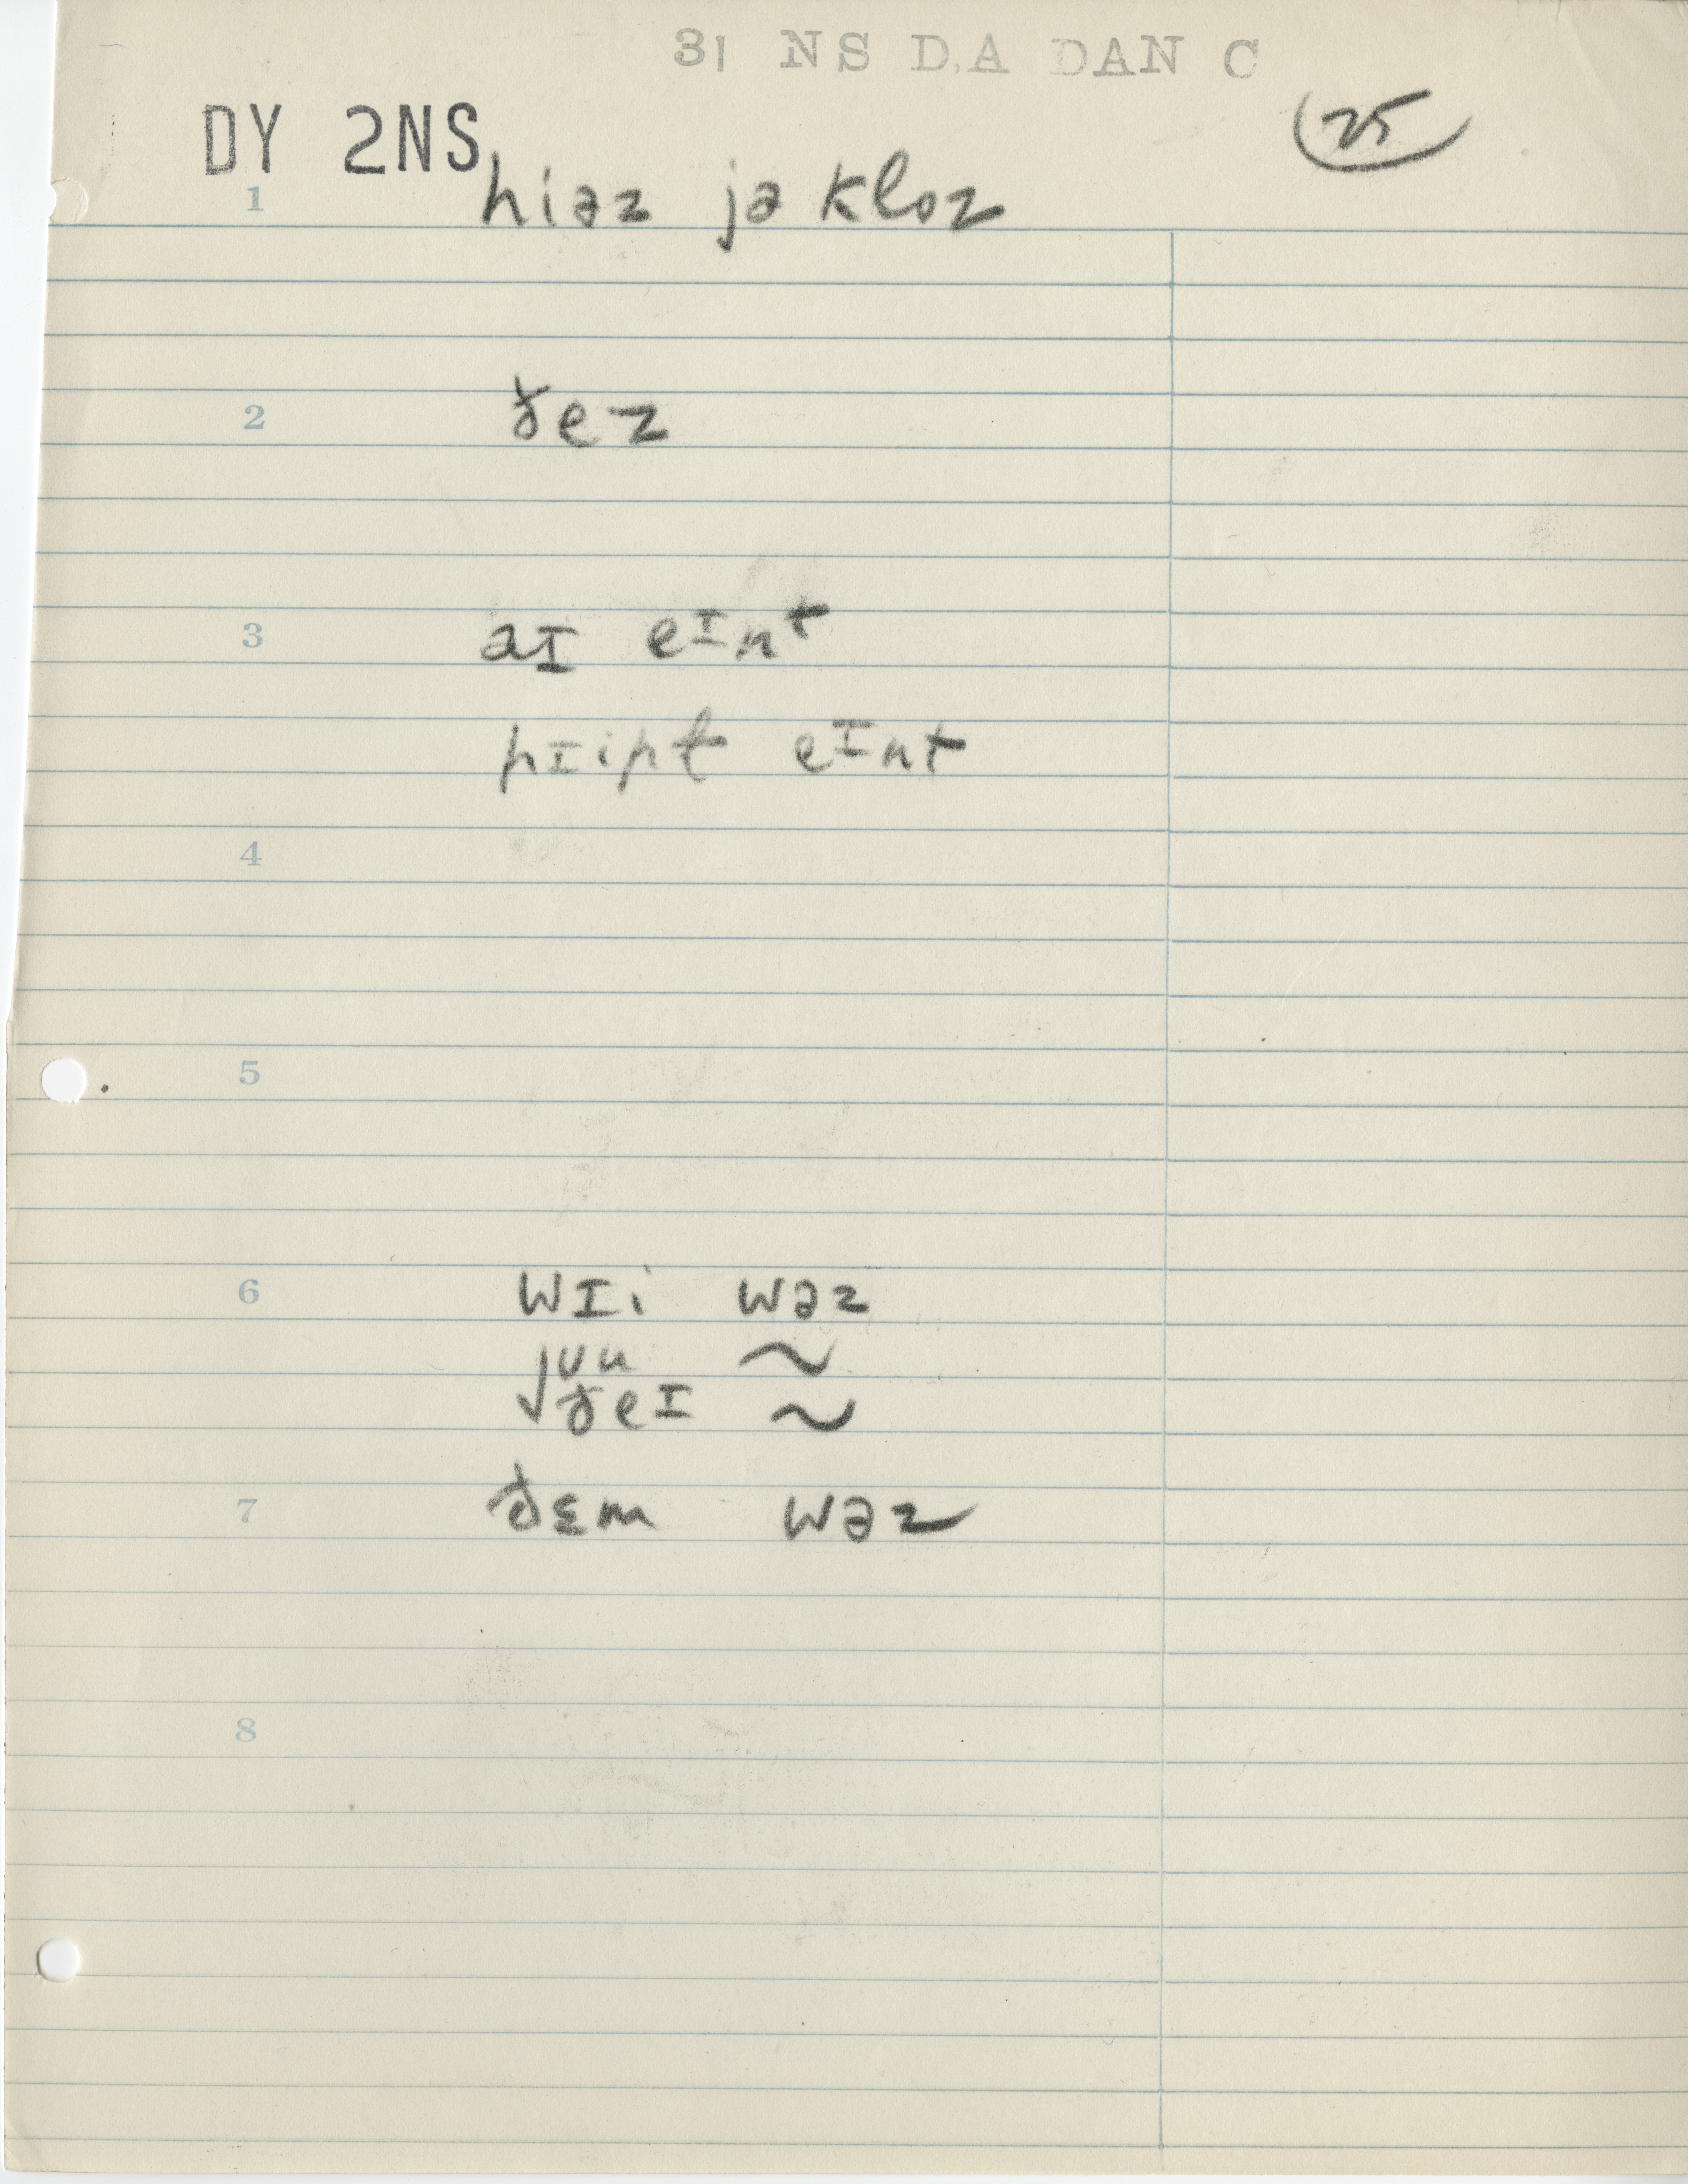 31 NS D,A DAN C
DY 2NS
25
1 hiəz jə kloz
2 ðez
3 aɪ eɪnt
pɪipɫ eɪnt
4
5
6 wɪi wəz
jʊu ~
√ðeɪ ~
7 ðɛm wəz
8